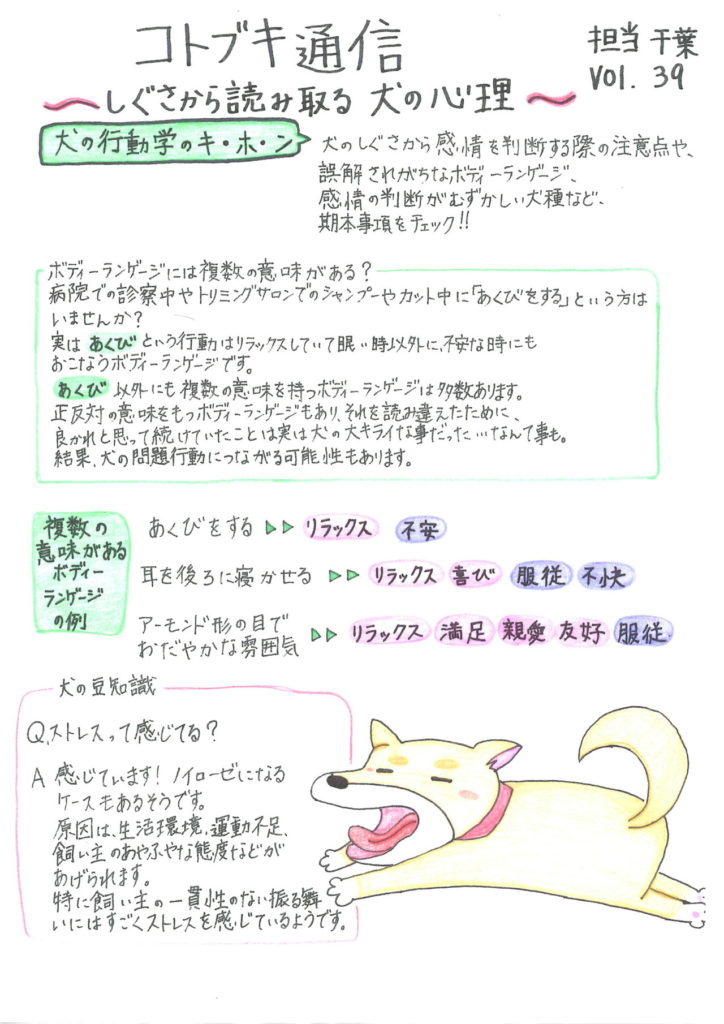 コトブキ通信
担当 千葉
VOl. 39
〜しぐさから読み取る 犬の心理〜
犬の行動学のキ・ホ・ン
犬のしぐさから感情を判断する際の注意点や、
誤解されがちなボディーランゲージ、
感情の判断がむずかしい犬種など、
期本事項をチェック!!
ボディーランゲージには複数の意味がある?
病院での診察中やトリミングサロンでのシャンプーやカット中に「あくびをする」という方は
いませんか?
実は あくび という行動はリラックスしていて眠い時以外に、不安な時にも
おこなうボディーランゲージです。
あくび 以外にも複数の意味を持つボディーランゲージは多数あります。
正反対の意味をもつボディーランゲージもあり、それを読み違えたために、
良かれと思って続けていたことは実は犬の大キライな事だった…なんて事も。
結果、犬の問題行動につながる可能性もあります。
複数の
意味がある
ボディー
ランゲージ
の例
あくびをする ▷▷ リラックス 不安
耳を後ろに寝かせる ▷▷ リラックス 喜び 服従 不快
アーモンド形の目で
おだやかな雰囲気 ▷▷ リラックス 満足 親愛 友好 服従
犬の豆知識
Q.ストレスって感じてる?
A 感じています! ノイローゼになる
ケースもあるそうです。
原因は、生活環境、運動不足、
飼い主のあやふやな態度などが
あげられます。
特に飼い主の一貫性のない振る舞
いにはすごくストレスを感じているようです。